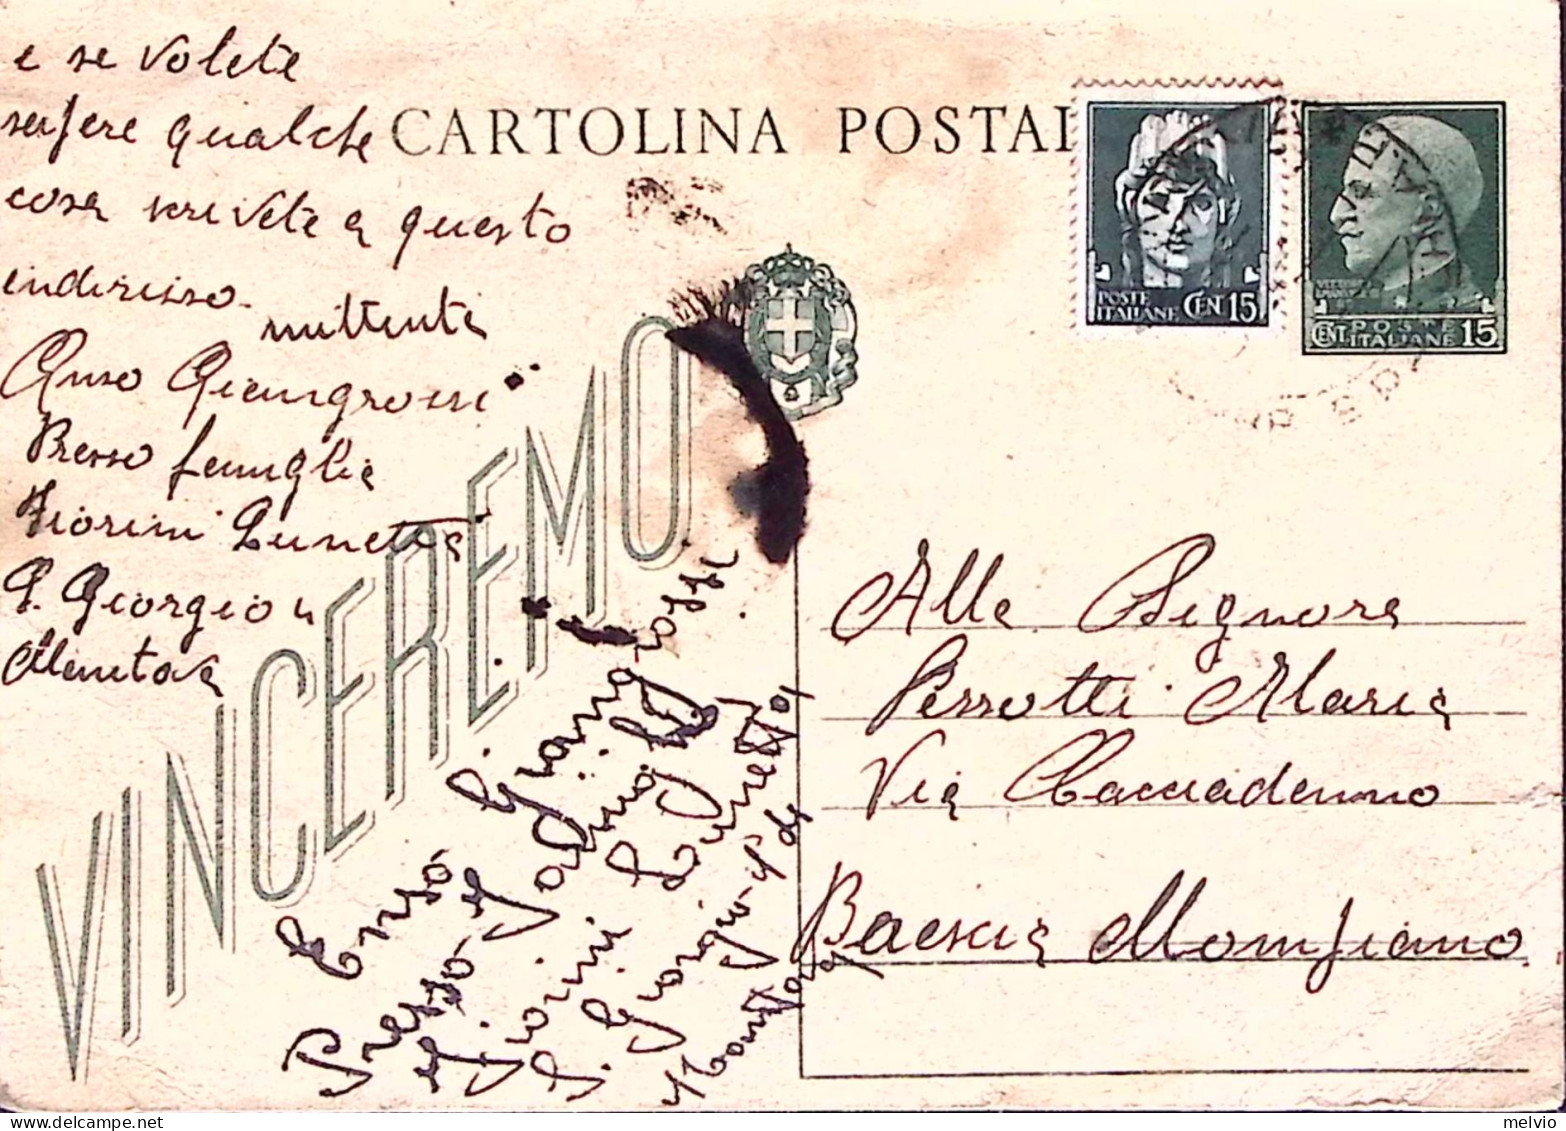 e se volete
sapere qualche
cosa scrivete a questo
indirisso.
mittente
Enso Giangrossi
Presso famiglia
Fiorini Lunetta
S. Giorgio di
Mantova
CARTOLINA POSTAL
POSTE
ITALIANE CENT 15
POSTE
CENT. ITALIANE 15
VINCEREMO
Enzo Giangrossi
Presso famiglia
Fiorini Lunetta
S. Giorgio di
Mantova
Alla Signora
Perrotti Maria
Via
Brescia Mompiano
melvio